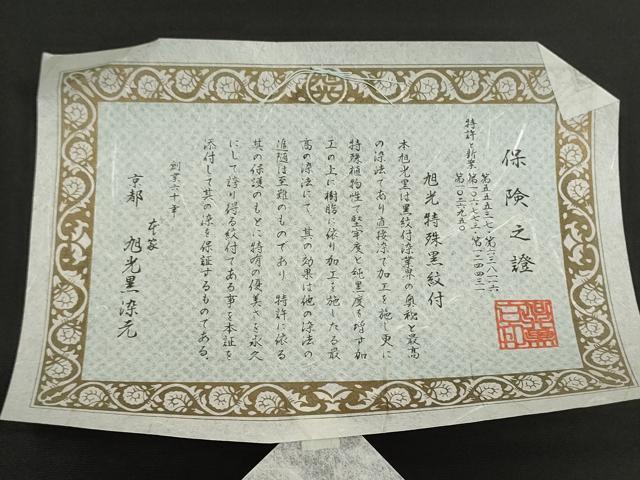 保険之證
特許と新案
第五五五三七七・第一二三八一六
第一〇六七七三・第一二四四三一
第一〇三六九五〇
旭光特殊黒紋付
本旭光黒は黒紋付染業界の奥秘と最高
の染法であり直接染て加工を施し更に
特殊植物性で堅牢度と純黒度を増す加
工の上に樹脂に依り加工を施したる最
高の染法にて、其の効果は他の染法の
追随は至難のものであり、特許に依る
其の保護のもとに特有の優美さを永久
にして誇り得る紋付である事を本証を
添付して其の染を保証するものである。
創業六十年
京都 本家 旭光黒染元